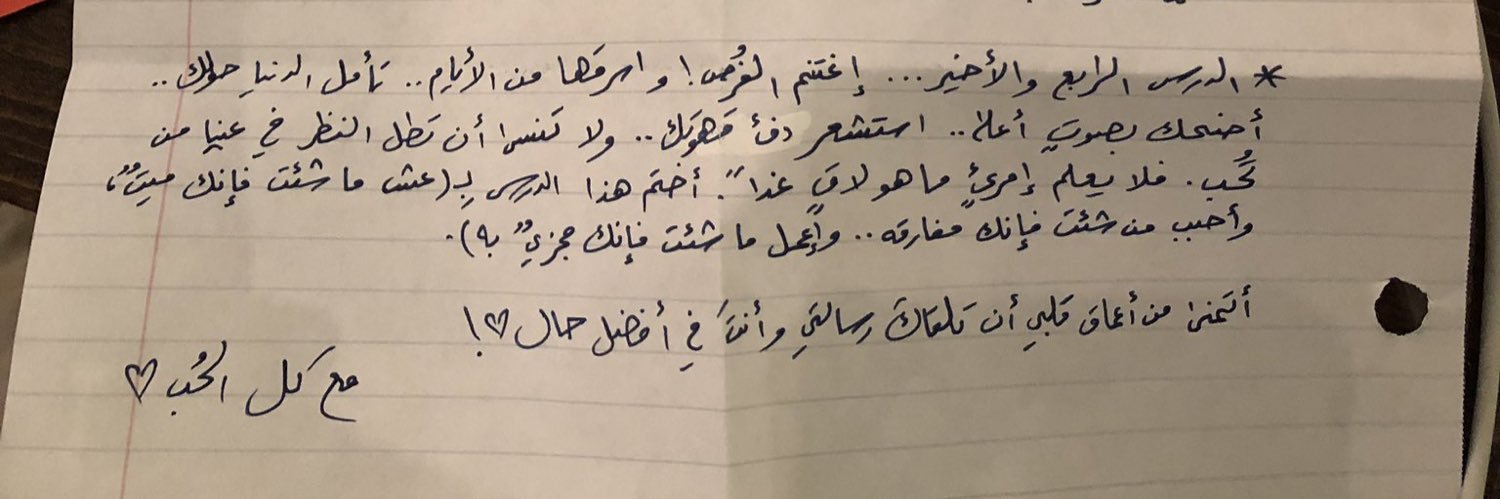 * الدرس الرابع والأخير... إغتنم الفُرص! واسرقها من الأيام.. تأمل الدنيا حولك..
أضحك بصوتٍ أعلى.. استشعر دفئ قهوتك.. ولا تنسا أن تطل النظر في عنيا من
تُحب. فلا يعلم إمرئٍ ما هو لاقٍ غداً. أختم هذا الدرس بـ(عش ما شئت فإنك ميتٌ،
وأحبب من شئت فإنك مفارقه.. وإعمل ما شئت فإنك مجزيٌ به).
أتمنى من أعماق قلبي أن تلقاك رسالتي وأنتَ في أفضل حال ♡!
مع كل الحُب ♡